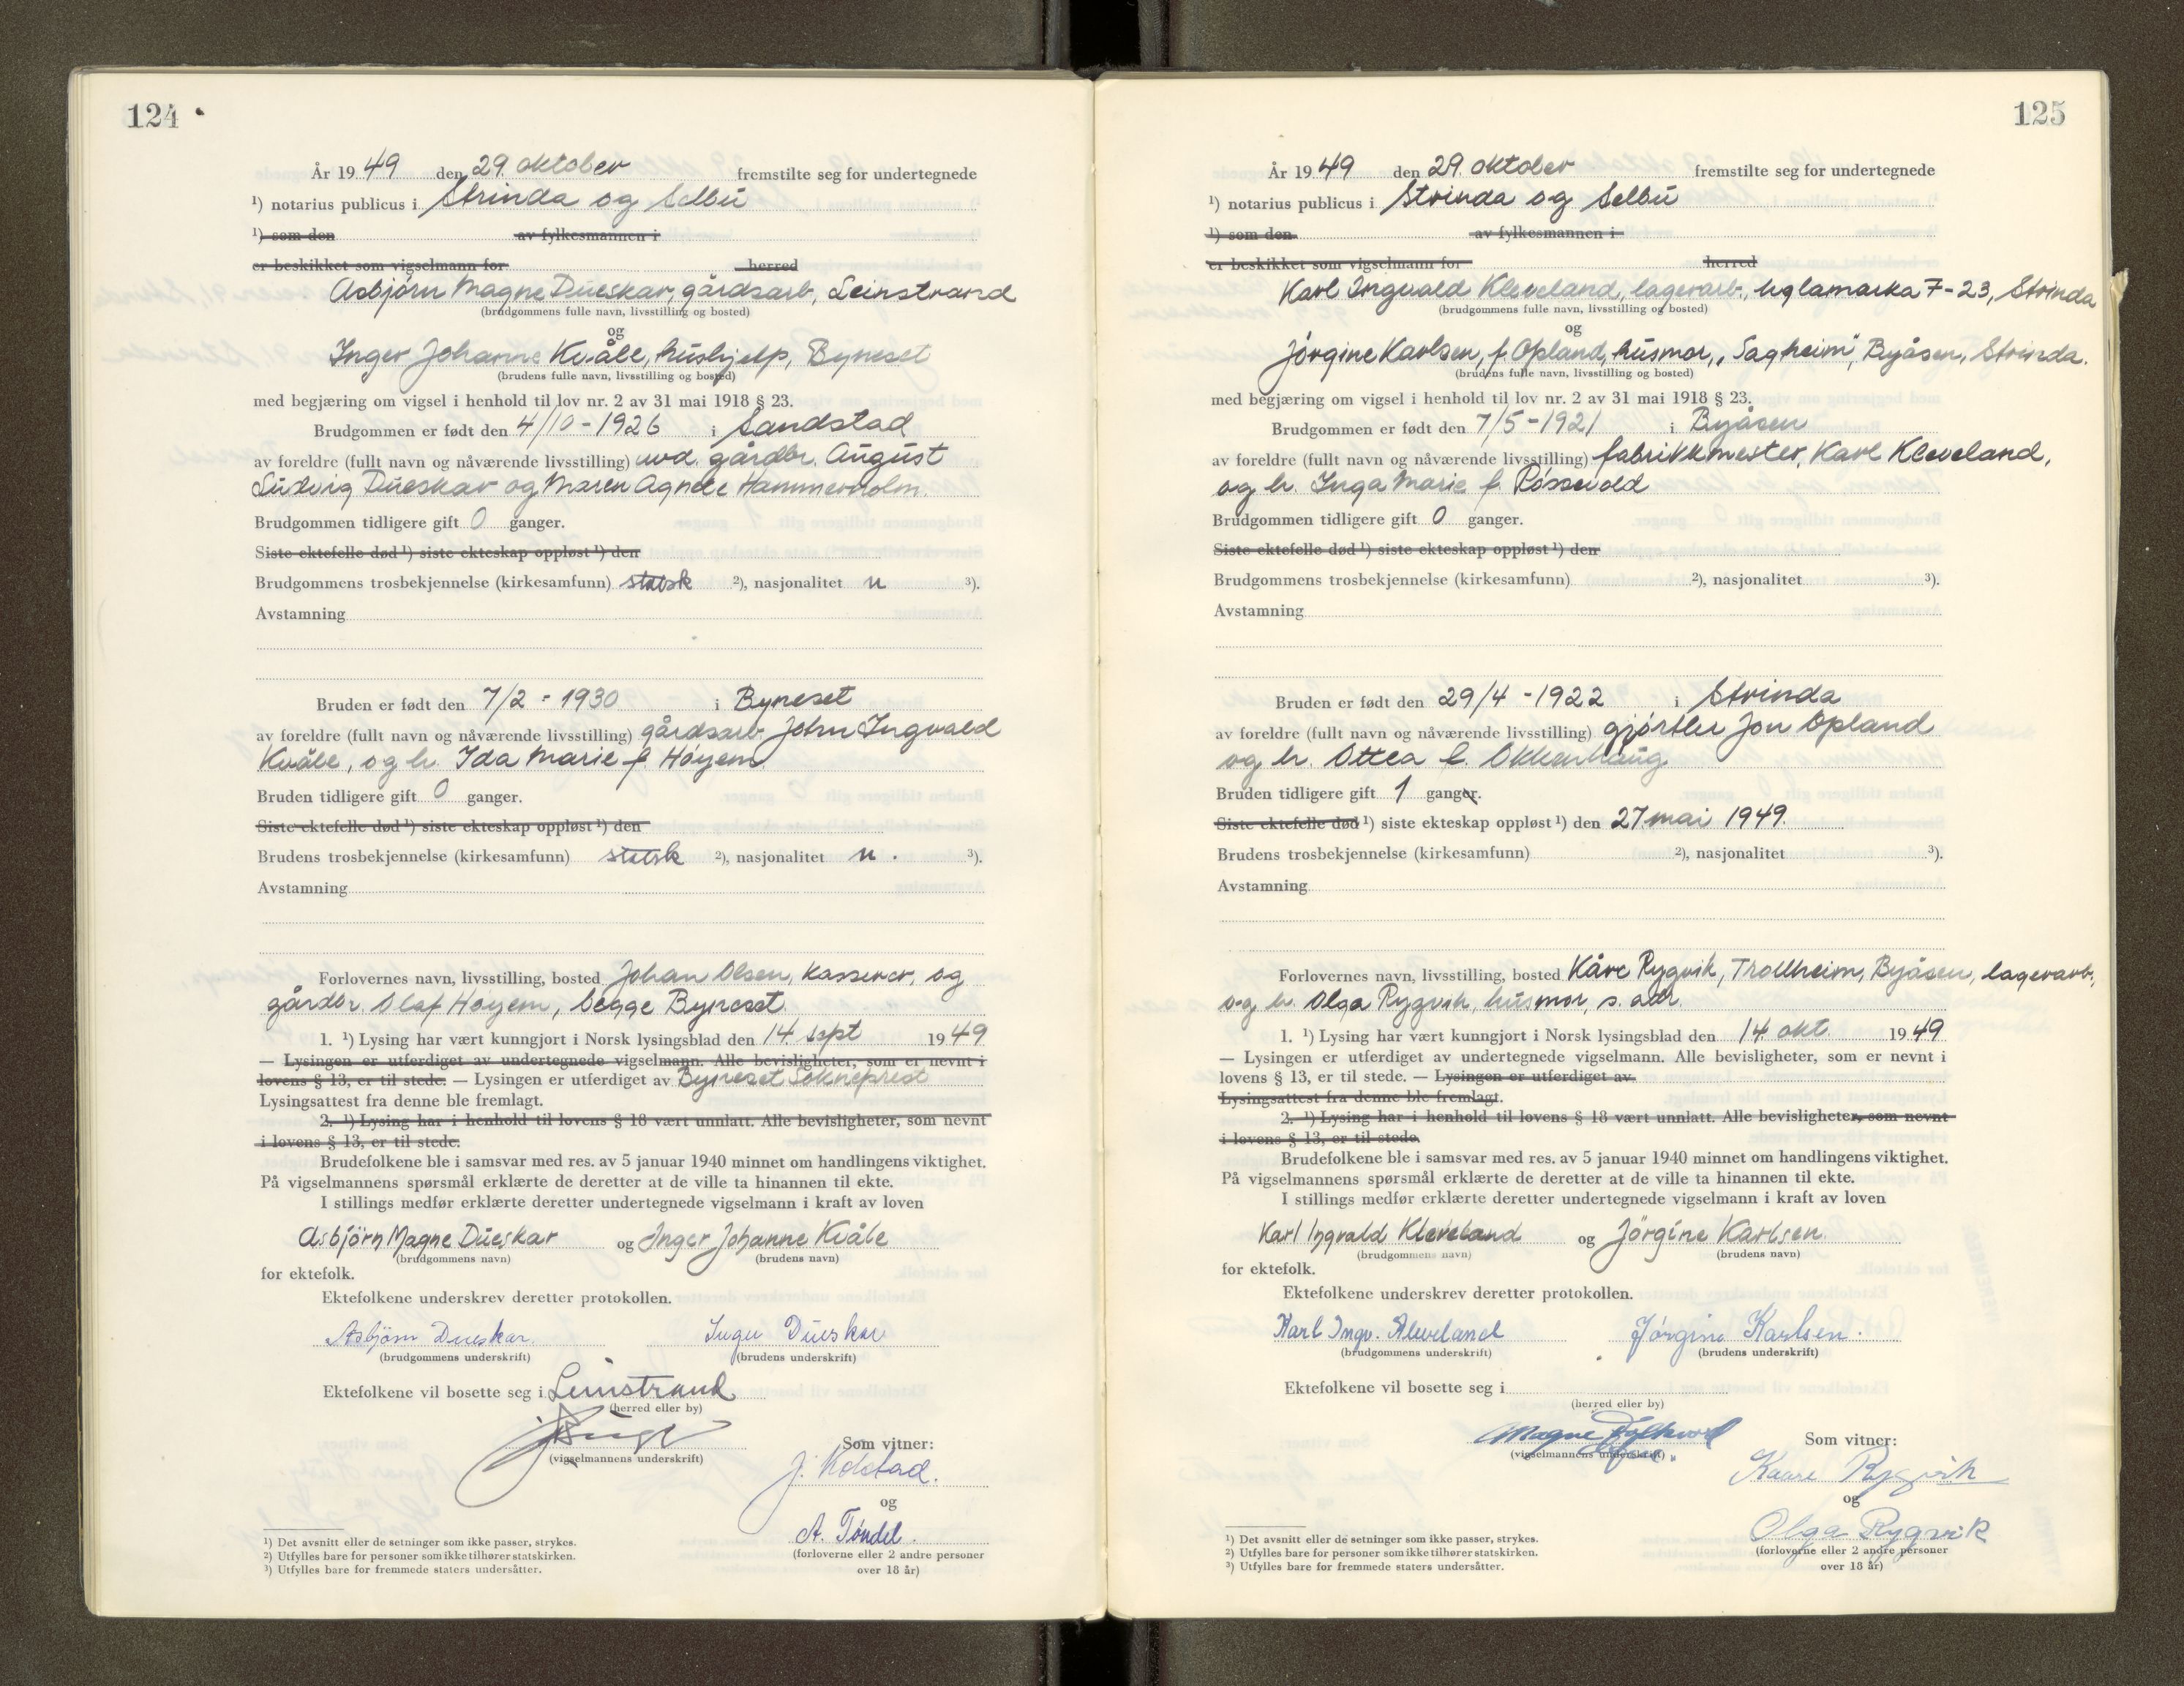 124
År 1949 den 29. oktober fremstilte seg for undertegnede
¹) notarius publicus i Strinda og Selbu
¹) som den av fylkesmannen i
er beskikket som vigselmann for herred
Asbjørn Magne Dueskar, gårdsarb, Leinstrand
(brudgommens fulle navn, livsstilling og bosted)
og
Inger Johanne Kvåle, hushjelp, Byneset
(brudens fulle navn, livsstilling og bosted)
med begjæring om vigsel i henhold til lov nr. 2 av 31 mai 1918 § 23.
Brudgommen er født den 4/10-1926 i Sandstad
av foreldre (fullt navn og nåværende livsstilling) avd. gårdbr. August
Ludvig Dueskar og Maren Agnete Hammerholm.
Brudgommen tidligere gift 0 ganger.
Siste ektefelle død ¹) siste ekteskap oppløst ¹) den
Brudgommens trosbekjennelse (kirkesamfunn) statsk ²), nasjonalitet n ³).
Avstamning
Bruden er født den 7/2 - 1930 i Byneset
av foreldre (fullt navn og nåværende livsstilling) gårdsarb. John Ingvald
Kvåle, og h. Ida Marie f. Høyem
Bruden tidligere gift 0 ganger.
Siste ektefelle død ¹) siste ekteskap oppløst ¹) den
Brudens trosbekjennelse (kirkesamfunn) statsk ²), nasjonalitet n. ³).
Avstamning
Forlovernes navn, livsstilling, bosted Johan Olsen, kasserer, og
gårdbr Olaf Høyem, begge Byneset.
1. ¹) Lysing har vært kunngjort i Norsk lysingsblad den 14. sept 1949
— Lysingen er utferdiget av undertegnede vigselmann. Alle bevisligheter, som er nevnt i
lovens § 13, er til stede. — Lysingen er utferdiget av Byneset Sokneprest
Lysingsattest fra denne ble fremlagt.
2. ¹) Lysing har i henhold til lovens § 18 vært unnlatt. Alle bevisligheter, som nevnt
i lovens § 13, er til stede.
Brudefolkene ble i samsvar med res. av 5 januar 1940 minnet om handlingens viktighet.
På vigselmannens spørsmål erklærte de deretter at de ville ta hinannen til ekte.
I stillings medfør erklærte deretter undertegnede vigselmann i kraft av loven
Asbjörn Magne Dueskar og Inger Johanne Kvåle
(brudgommens navn) (brudens navn)
for ektefolk.
Ektefolkene underskrev deretter protokollen.
Asbjörn Dueskar. Inger Dueskar
(brudgommens underskrift) (brudens underskrift)
Ektefolkene vil bosette seg i Leinstrand
(herred eller by)
(vigselmannens underskrift)
Som vitner:
J. Kolstad.
og
A. Tøndel.
(forloverne eller 2 andre personer
over 18 år)
¹) Det avsnitt eller de setninger som ikke passer, strykes.
²) Utfylles bare for personer som ikke tilhører statskirken.
³) Utfylles bare for fremmede staters undersåtter.
125
År 1949 den 29. oktober fremstilte seg for undertegnede
¹) notarius publicus i Strinda og Selbu
¹) som den av fylkesmannen i
er beskikket som vigselmann for herred
Karl Ingvald Kleveland, lagerarb., Uglamarka 7-23, Strinda
(brudgommens fulle navn, livsstilling og bosted)
og
Jørgine Karlsen, f. Opland, husmor, "Sagheim", Byåsen, Strinda.
(brudens fulle navn, livsstilling og bosted)
med begjæring om vigsel i henhold til lov nr. 2 av 31 mai 1918 § 23.
Brudgommen er født den 7/5-1921 i Byåsen
av foreldre (fullt navn og nåværende livsstilling) fabrikkmester, Karl Kleveland,
og h. Inga Marie f. Røssevold
Brudgommen tidligere gift 0 ganger.
Siste ektefelle død ¹) siste ekteskap oppløst ¹) den
Brudgommens trosbekjennelse (kirkesamfunn) ²), nasjonalitet ³).
Avstamning
Bruden er født den 29/4-1922 i Strinda
av foreldre (fullt navn og nåværende livsstilling) gjørtler Jon Opland
og h. Ottea f. Okkenhaug
Bruden tidligere gift 1 ganger.
Siste ektefelle død ¹) siste ekteskap oppløst ¹) den 27. mai 1949.
Brudens trosbekjennelse (kirkesamfunn) ²), nasjonalitet ³).
Avstamning
Forlovernes navn, livsstilling, bosted Kåre Rygvik, Trollheim, Byåsen, lagerarb.,
og h. Olga Rygvik, husmor, s. adr.
1. ¹) Lysing har vært kunngjort i Norsk lysingsblad den 14. okt 1949
— Lysingen er utferdiget av undertegnede vigselmann. Alle bevisligheter, som er nevnt i
lovens § 13, er til stede. — Lysingen er utferdiget av
Lysingsattest fra denne ble fremlagt.
2. ¹) Lysing har i henhold til lovens § 18 vært unnlatt. Alle bevisligheter, som nevnt
i lovens § 13, er til stede.
Brudefolkene ble i samsvar med res. av 5 januar 1940 minnet om handlingens viktighet.
På vigselmannens spørsmål erklærte de deretter at de ville ta hinannen til ekte.
I stillings medfør erklærte deretter undertegnede vigselmann i kraft av loven
Karl Ingvald Kleveland og Jörgine Karlsen
(brudgommens navn) (brudens navn)
for ektefolk.
Ektefolkene underskrev deretter protokollen.
Karl Ingv. Kleveland Jørgine Karlsen.
(brudgommens underskrift) (brudens underskrift)
Ektefolkene vil bosette seg i
(herred eller by)
Magne
(vigselmannens underskrift)
Som vitner:
Kaare Rygvik
og
Olga Rygvik
(forloverne eller 2 andre personer
over 18 år)
¹) Det avsnitt eller de setninger som ikke passer, strykes.
²) Utfylles bare for personer som ikke tilhører statskirken.
³) Utfylles bare for fremmede staters undersåtter.